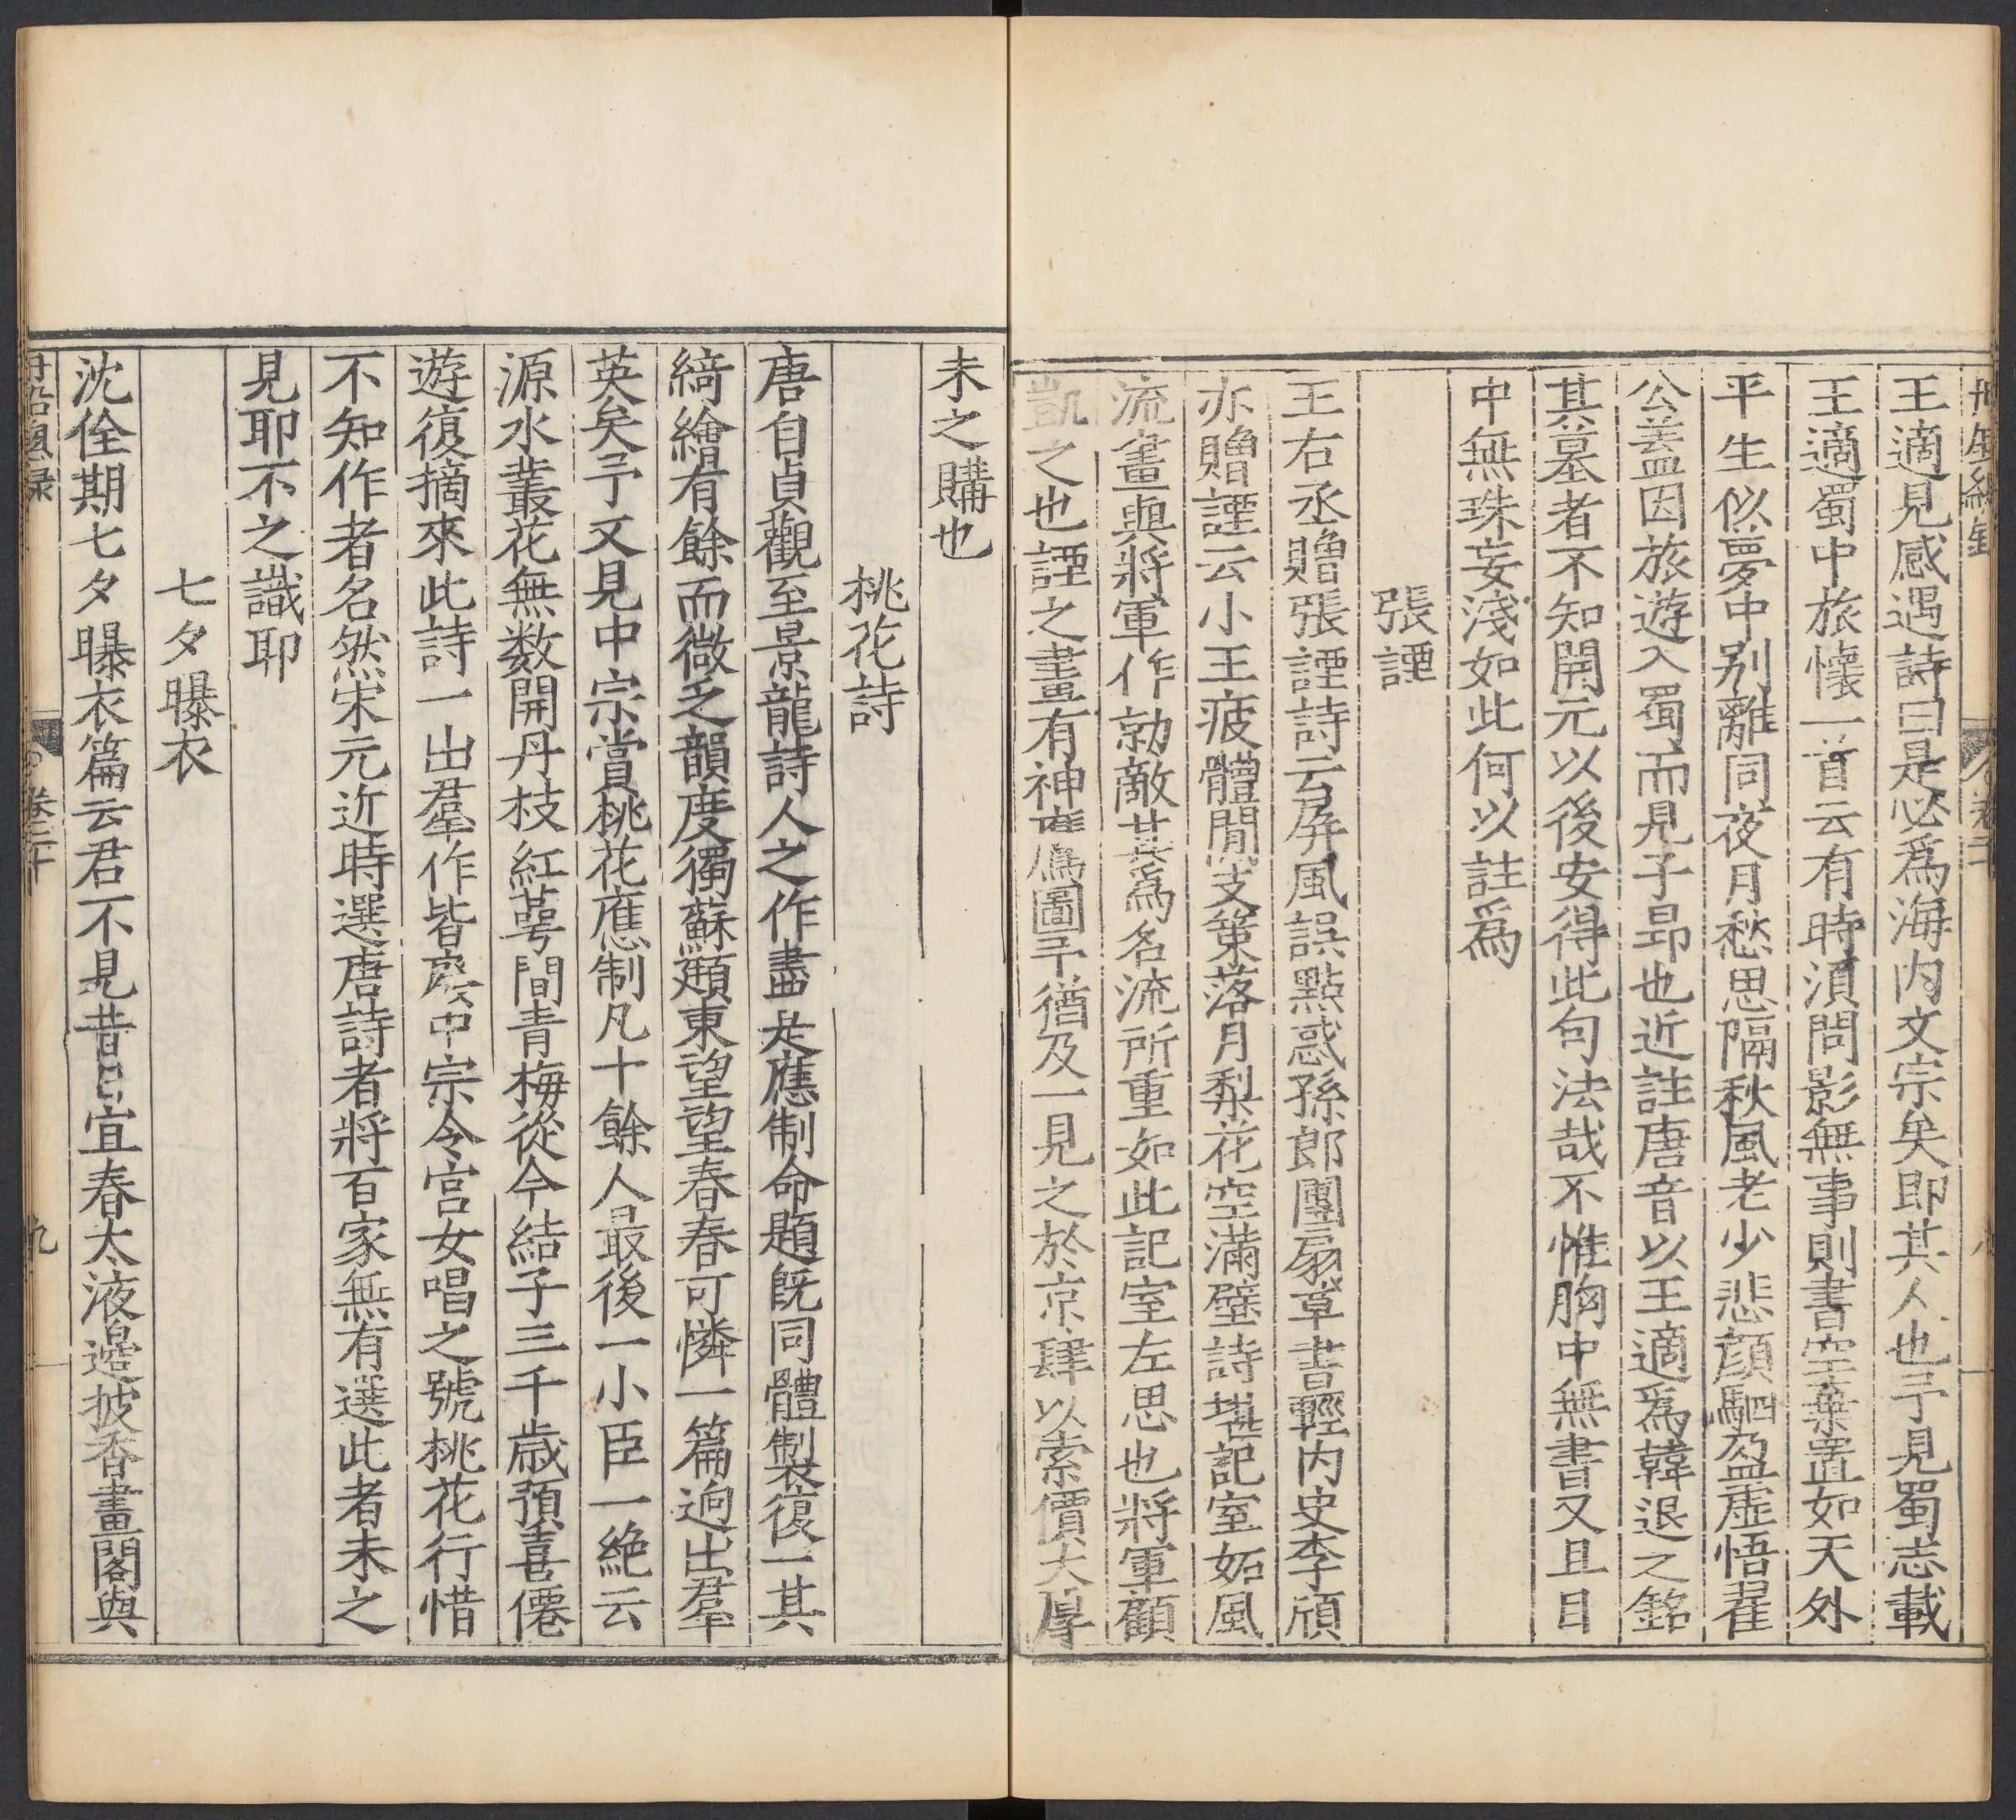 王適見感遇詩曰是必爲海内文宗矣即其人也予見蜀志載
王適蜀中旅懷一首云有時須問影無事則書空棄置如天外
平生似夢中别離同夜月愁思隔秋風老少悲顔駟盈虚悟翟
公蓋因旅遊入蜀而見子昻也近註唐音以王適爲韓退之銘
其墓者不知開元以後安得此句法哉不惟胸中無書又且目
中無珠妄淺如此何以註爲
張諲
王右丞贈張諲詩云屏風誤點惑孫郎團扇草書輕内史李頎
亦贈諲云小王疲體閒支策落月梨花空滿壁詩堪記室妬風
流畫與將軍作勍敵其爲名流所重如此記室左思也將軍顧
凱之也諲之畫有神鷹圖予猶及一見之於京肆以索價大厚
未之購也
桃花詩
唐自貞觀至景龍詩人之作盡是應制命題旣同體製復一其
綺繪有餘而微乏韻度獨蘇頲東望望春春可憐一篇逈出羣
英矣予又見中宗賞桃花應制凡十餘人最後一小臣一絶云
源水叢花無数開丹枝紅萼間青梅從今結子三千歳預喜僊
遊復摘來此詩一出羣作皆廢中宗令宫女唱之號桃花行惜
不知作者名然宋元近時選唐詩者將百家無有選此者未之
見耶不之識耶
七夕曝衣
沈佺期七夕曝衣篇云君不見昔日宜春太液邉披香畫閣與
卷二十
九